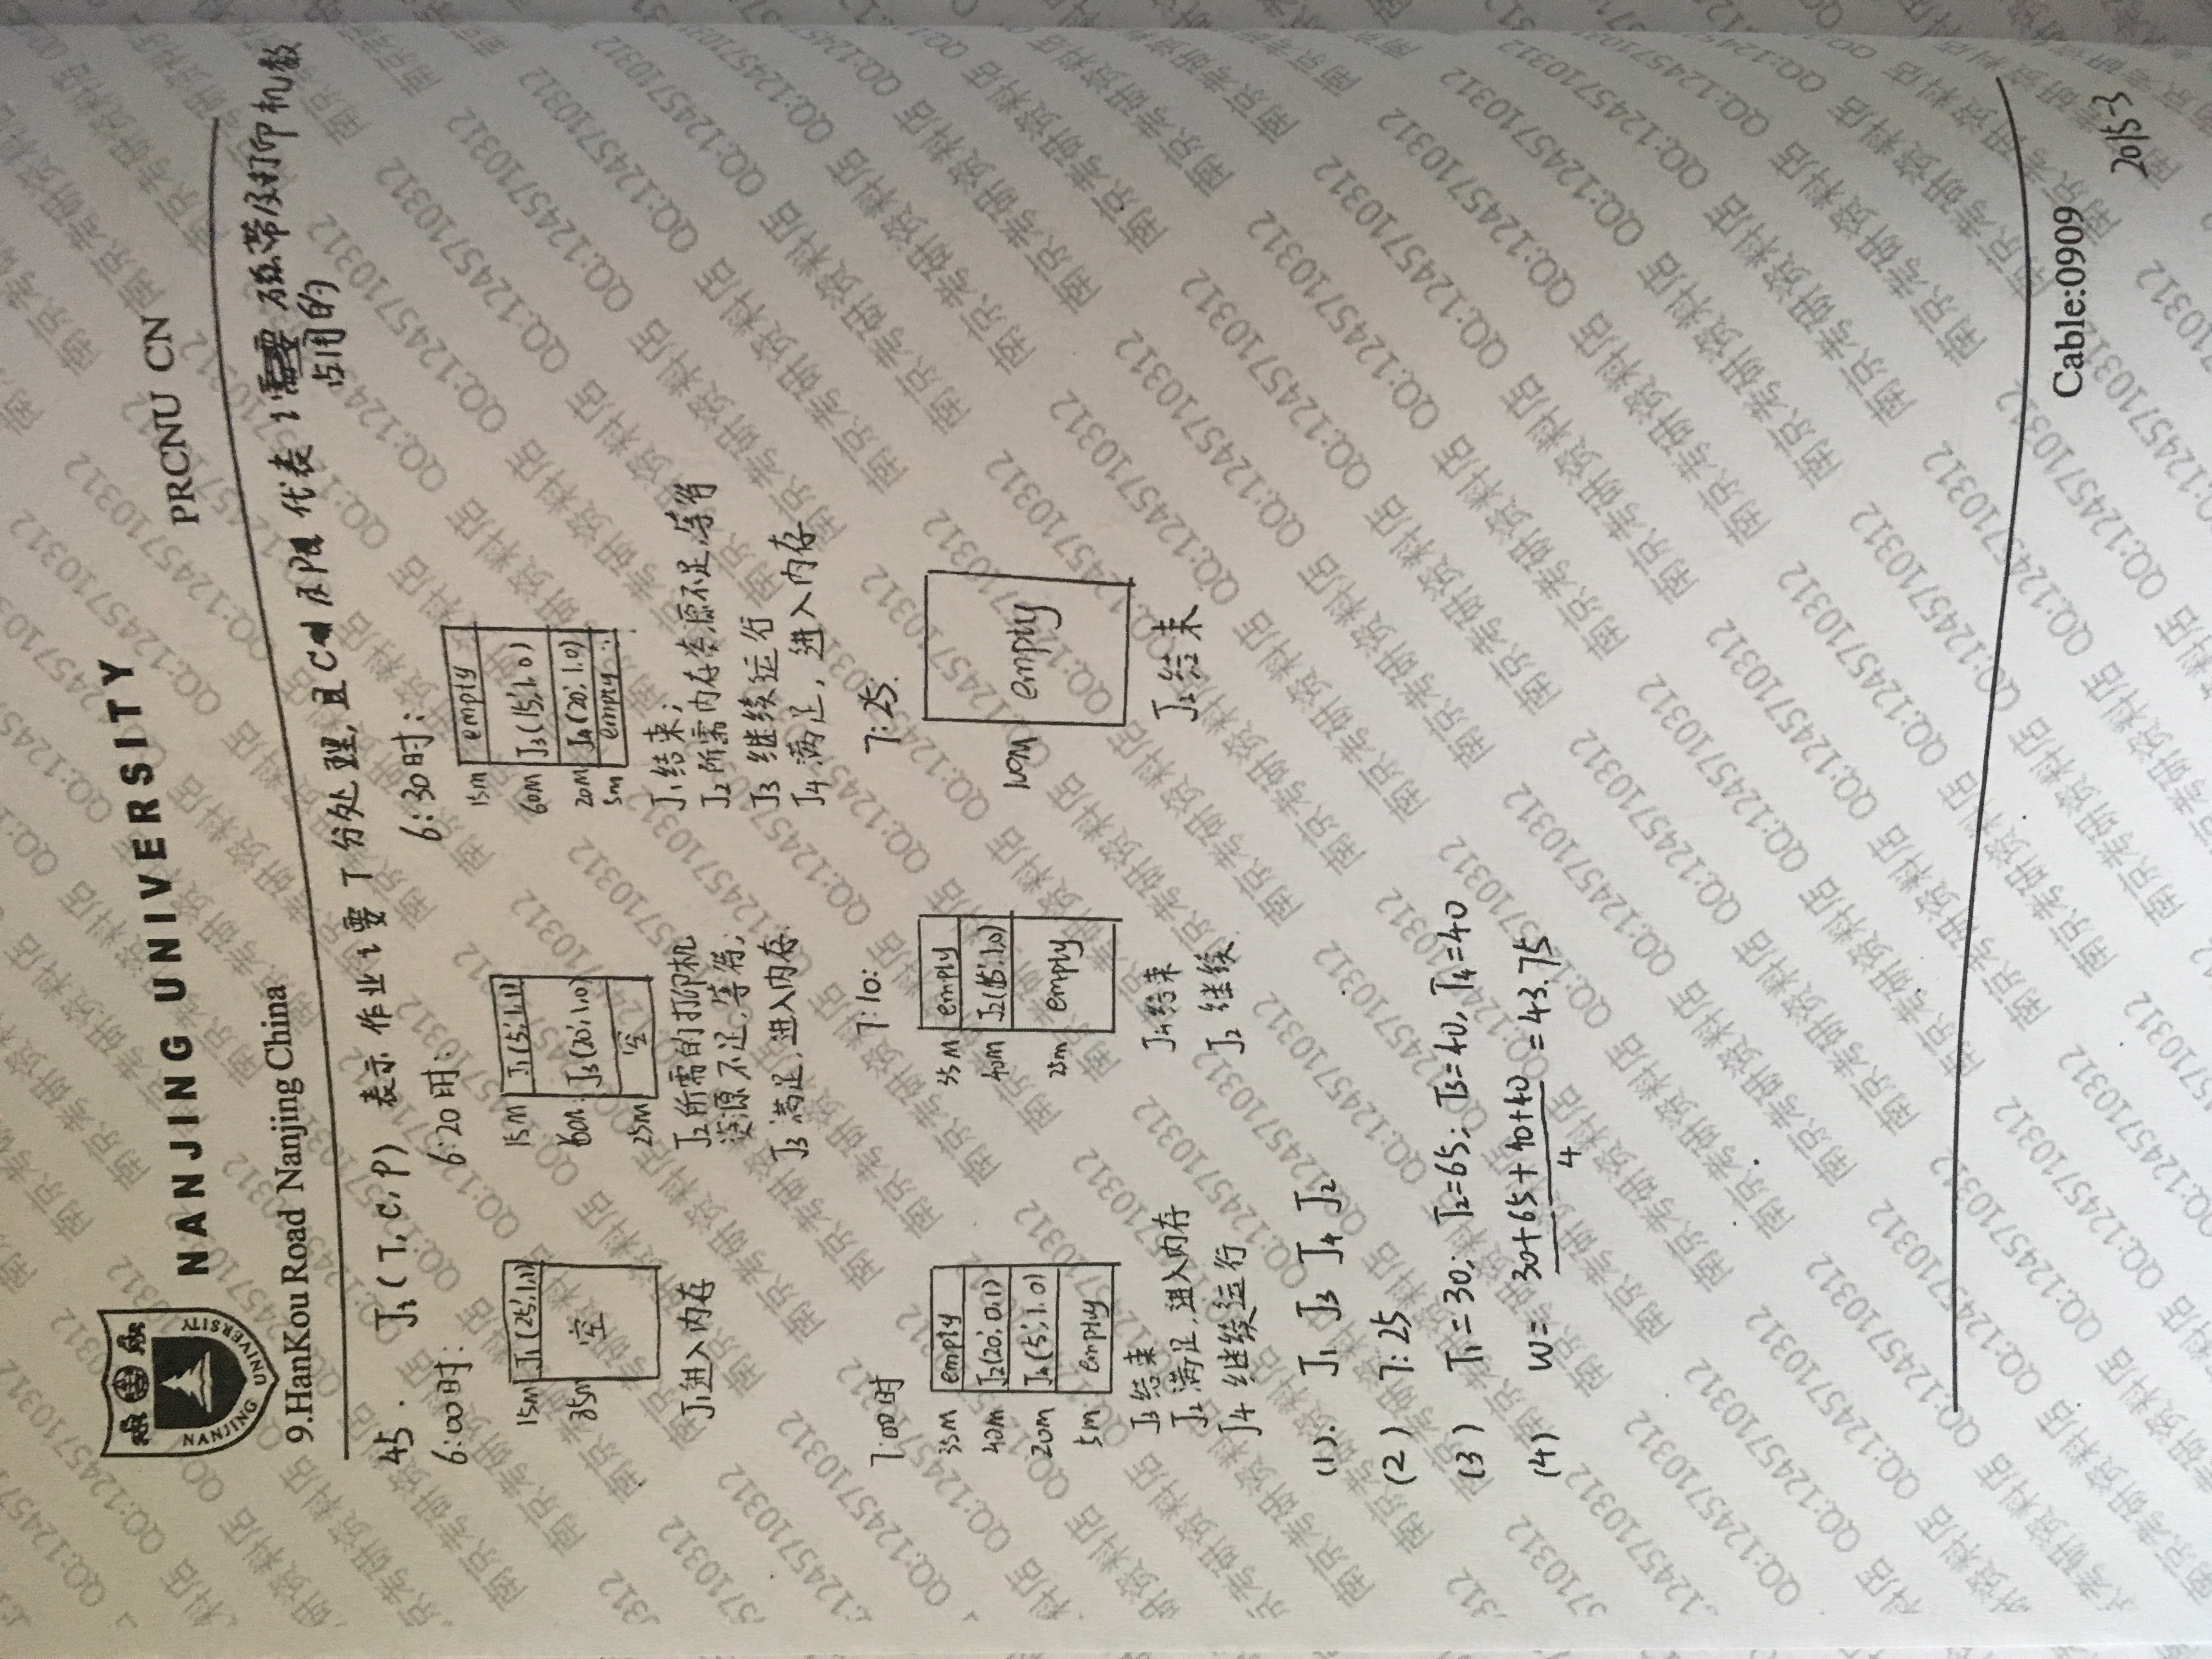 NANJING UNIVERSITY
PRCNU CN
9.HanKou Road Nanjing China
45. Ji(T, C, P) 表示作业i要T分处理,且C及P代表i占用的磁带及打印机数
6:00时:
15M J1(25',1,1)
85M 空
J1进入内存
6:20时:
15M J1(5',1,1)
60M J3(20',1,0)
25M 空
J2所需的打印机
资源不足,等待;
J3满足,进入内存.
6:30时:
15M empty
60M J3(15',1,0)
20M J4(20',1,0)
5M empty
J1结束;
J2所需内存资源不足,等待
J3继续运行
J4满足,进入内存
7:00时
35M empty
40M J2(20',0,1)
20M J4(5',1,0)
5M empty
J3结束
J2满足,进入内存
J4继续运行
7:10:
35M empty
40M J2(15',1,0)
25M empty
J4结束
J2继续
7:25:
100M empty
J2结束
(1). J1 J3 J4 J2
(2) 7:25
(3) T1=30; T2=65; T3=40, T4=40
(4) W= (30+65+40+40)/4 =43.75
Cable:0909
2015-3
南京考研资料店 QQ:1245710312